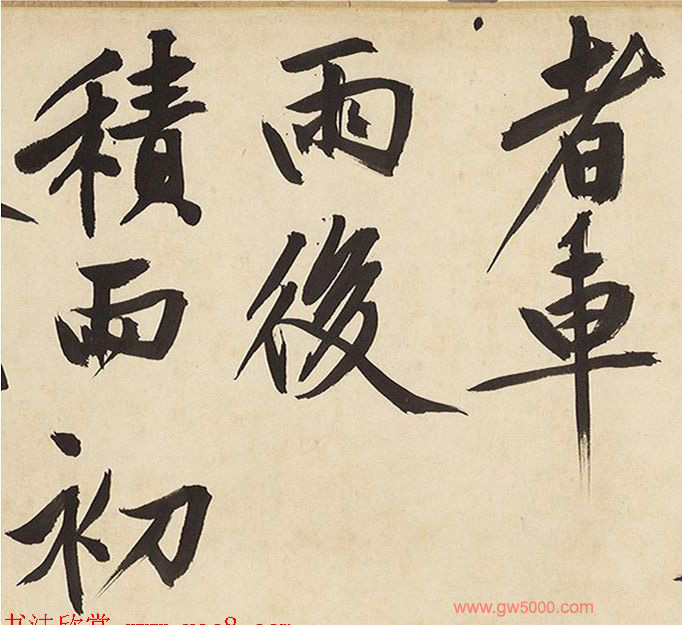 者車
雨後
積雨初
www.gw5000.com
书法欣赏